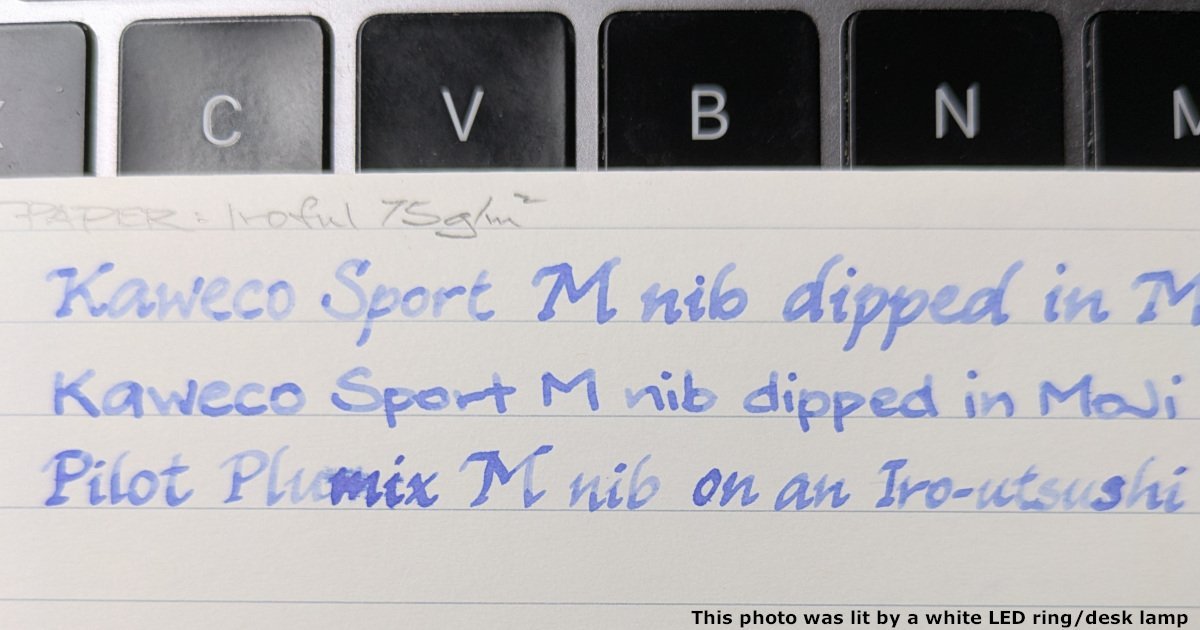 C V B N M
PAPER: Iroful 75g/m²
Kaweco Sport M nib dipped in M
Kaweco Sport M nib dipped in Moji
Pilot Plumix M nib on an Iro-utsushi
This photo was lit by a white LED ring/desk lamp